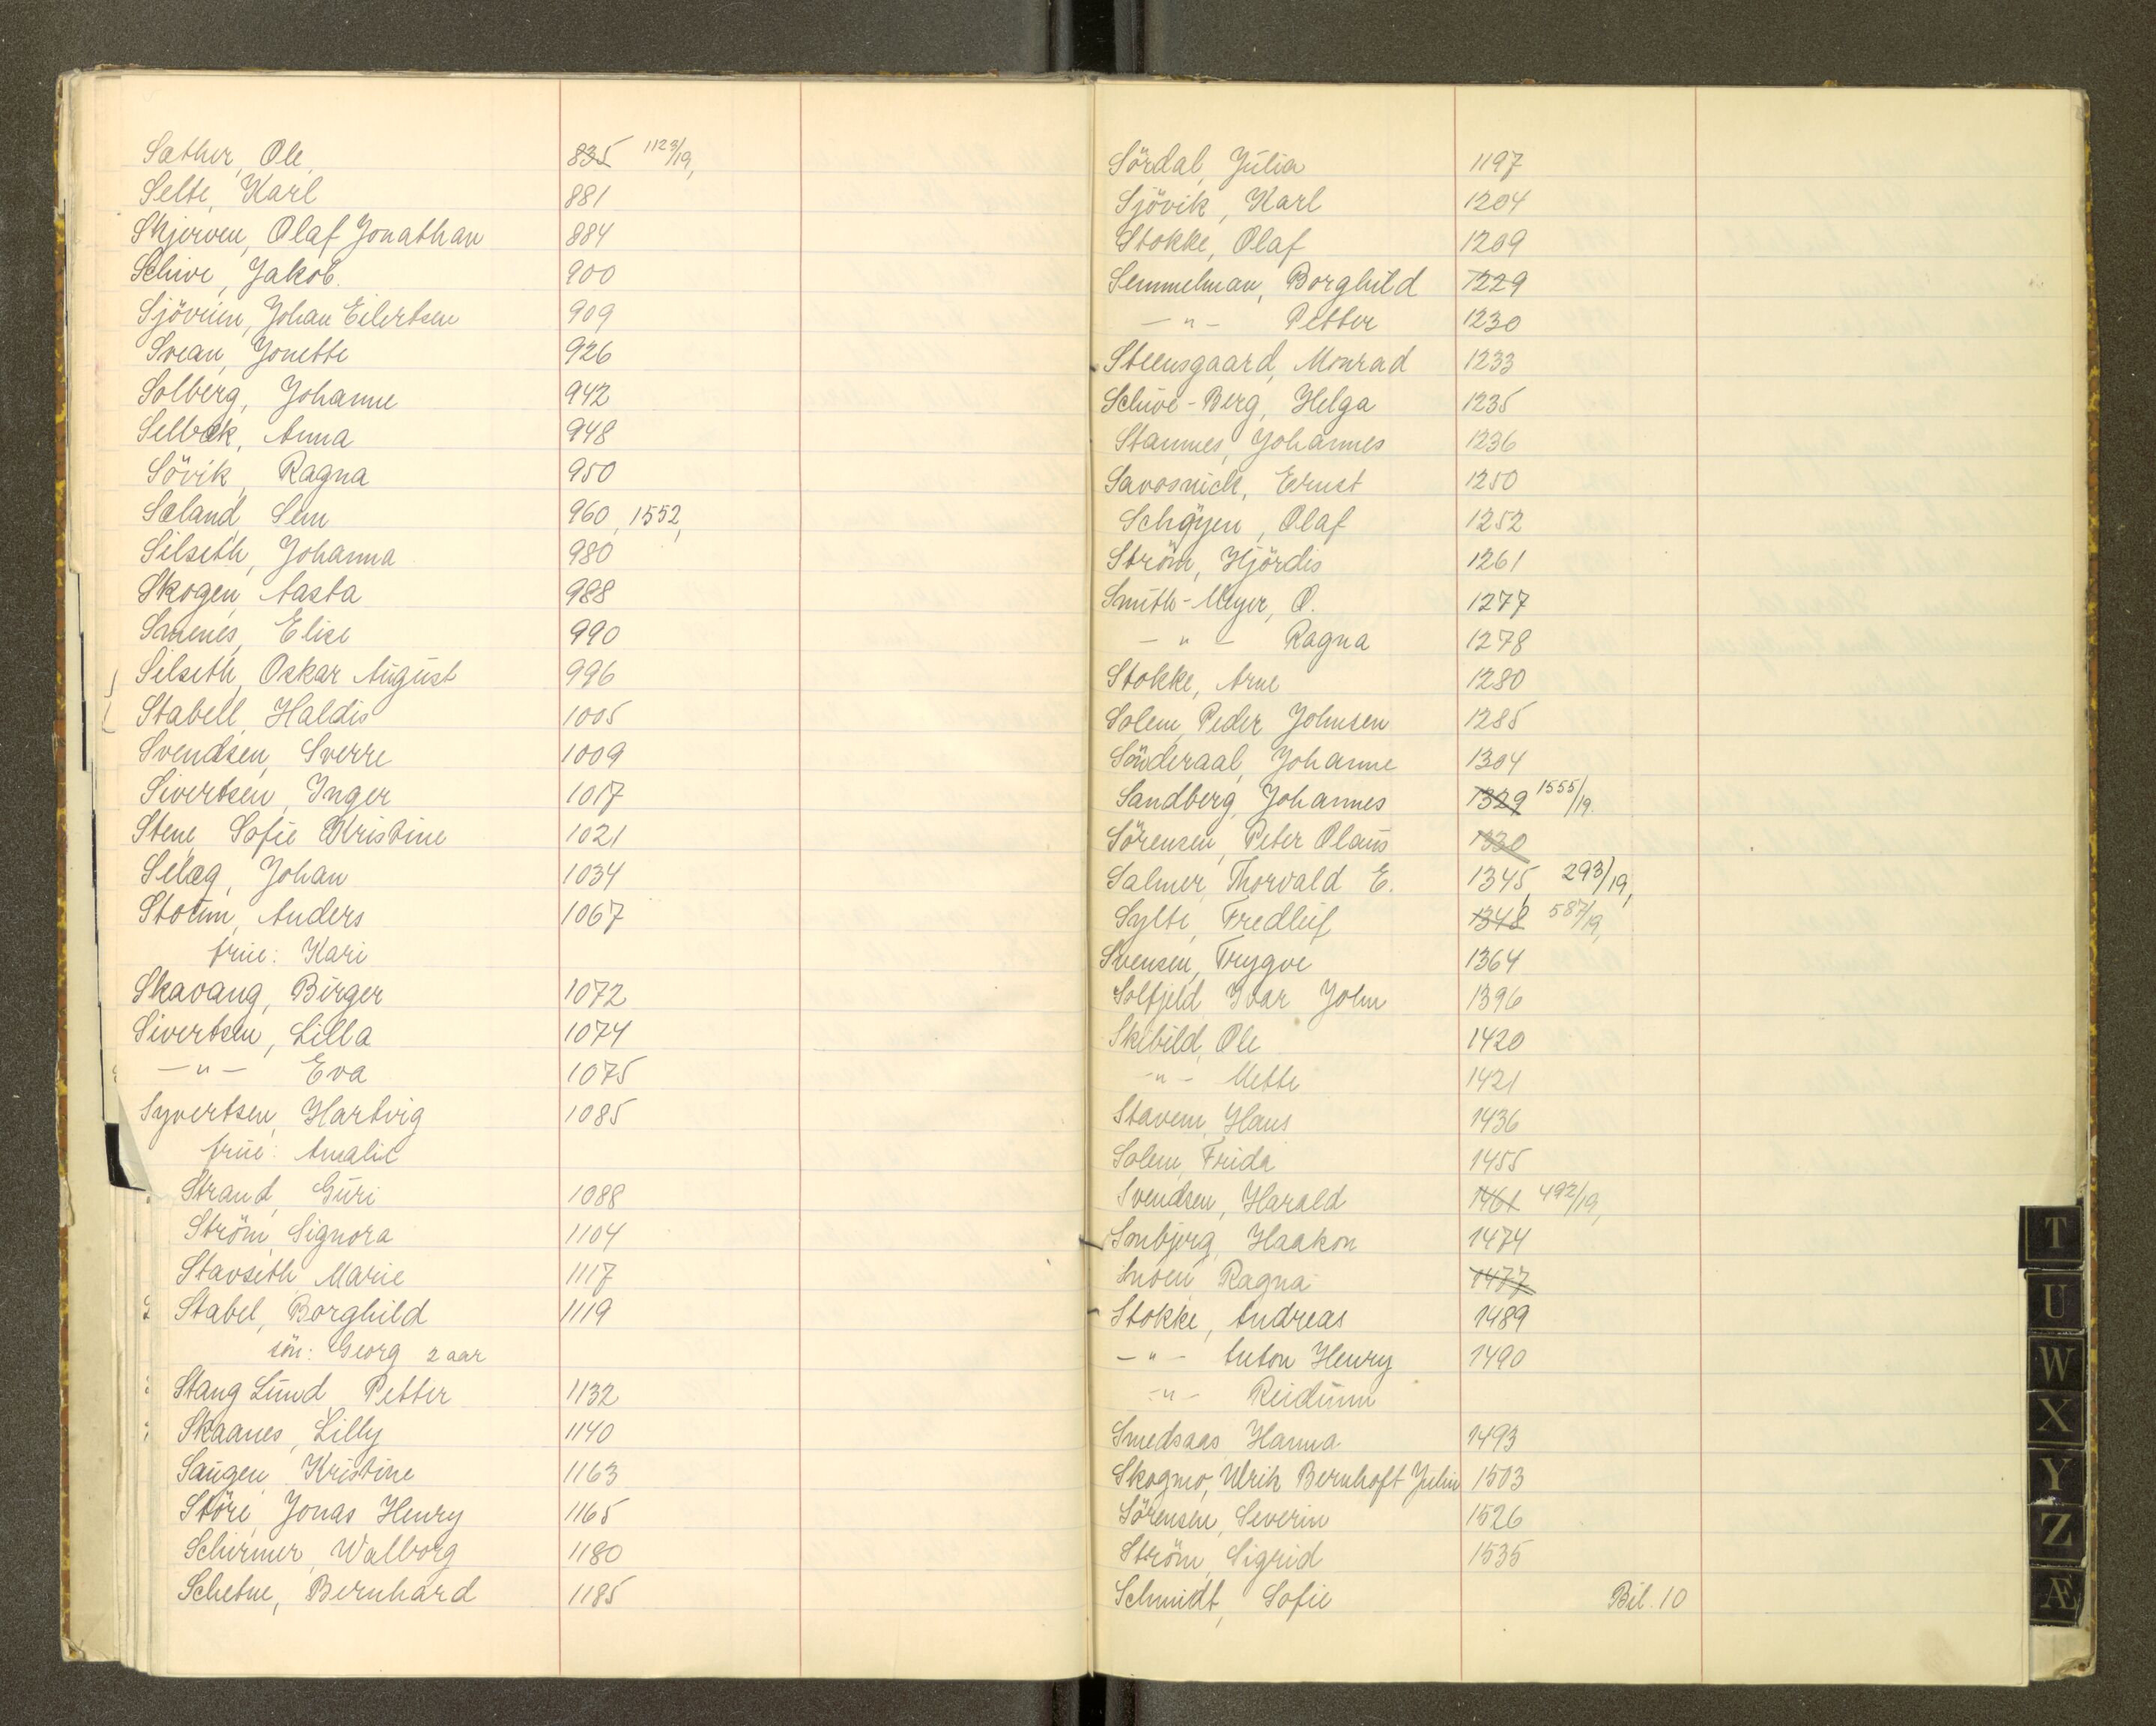 Sæther, Ole 835 1123/19,
Selte, Karl 881
Skjerven, Olaf Jonathan 884
Schive, Jakob. 900
Sjöveien, Johan Eilertsen 909
Svean, Jonette 926
Solberg, Johanne 942
Selbæk, Anna 948
Sövik, Ragna 950
Sæland, Sem 960, 1552,
Silseth, Johanna 980
Skogen, Aasta 988
Smenes, Elise 990
Silseth, Oskar August 996
Stabell, Haldis 1005
Svendsen, Sverre 1009
Sivertsen, Inger 1017
Stene, Sofie Kristine 1021
Selæg, Johan 1034
Anders 1067
frue: Kari
Skavang, Birger 1072
Sivertsen, Lilla 1074
-"- Eva 1075
Syvertsen, Hartvig 1085
frue: Amalie
Strand, Guri 1088
Ström, Signora 1104
Stavseth, Marie 1117
Stabel, Borghild 1119
sön: Georg 2 aar
Stang Lund, Petter 1132
Skaanes, Lilly 1140
Saugen, Kristine 1163
Störe, Jonas Henry 1165
Schirmer, Walborg 1180
Schetne, Bernhard 1185
Sördal, Julia 1197
Sjövik, Karl 1204
Stokke, Olaf 1209
Semmelman, Borghild 1229
-"- Petter 1230
Steensgaard, Monrad 1233
Schive-Berg, Helga 1235
Stamnes, Johannes 1236
Savosnick, Ernst 1250
Schøyen, Olaf 1252
Ström, Hjördis 1261
Smith-Meyer, O. 1277
-"- Ragna 1278
Stokke, Arne 1280
Solem, Peder Johnsen 1285
Sönderaal, Johanne 1304
Sandberg, Johannes 1329 1555/19.
Sörensen, Peter Olaus 1330
Salmer, Thorvald E. 1345, 293/19,
Sylte, Fredleif 1348 587/19,
Svensen, Trygve 1364
Solfjeld, Ivar John 1396
Skibild, Ole 1420
-"- Mette 1421
Stavem, Hans 1436
Solem, Frida 1455
Svendsen, Harald 1461 492/19,
Haakon 1474
Ragna 1477
Stokke, Andreas 1489
-"- Anton Henry 1490
-"- Reidunn
Smedsaas, Hanna 1493
Skogmo, Ulrik Bernhoft Julin 1503
Sörensen, Severin 1526
Ström, Sigrid 1535
Schmidt, Sofie Bil. 10
T
U
W
X
Y
Z
Æ